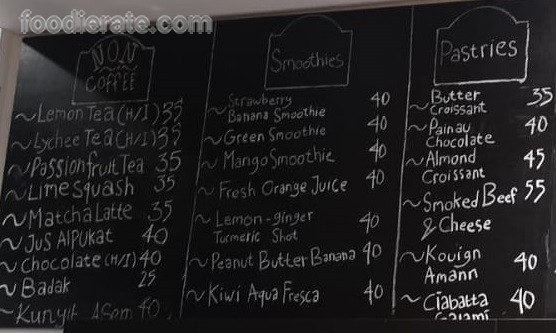 foodierate.com
NON
COFFEE
~Lemon Tea (H/I) 35
~Lychee Tea (H/I) 35
~Passionfruit Tea 35
~Lime Squash 35
~Matcha Latte 35
~Jus Alpukat 40
~Chocolate (H/I) 40
~Badak 25
~Kunyit Asem 40
Smoothies
~Strawberry
Banana Smoothie 40
~Green Smoothie 40
~Mango Smoothie 40
~Fresh Orange Juice 40
~Lemon-ginger
Turmeric Shot 40
~Peanut Butter Banana 40
~Kiwi Aqua Fresca 40
Pastries
~Butter 35
Croissant
~Painau 40
Chocolate
~Almond 45
Croissant
~Smoked Beef 55
& Cheese
~Kouign 40
Amann
~Ciabatta 40
Salami